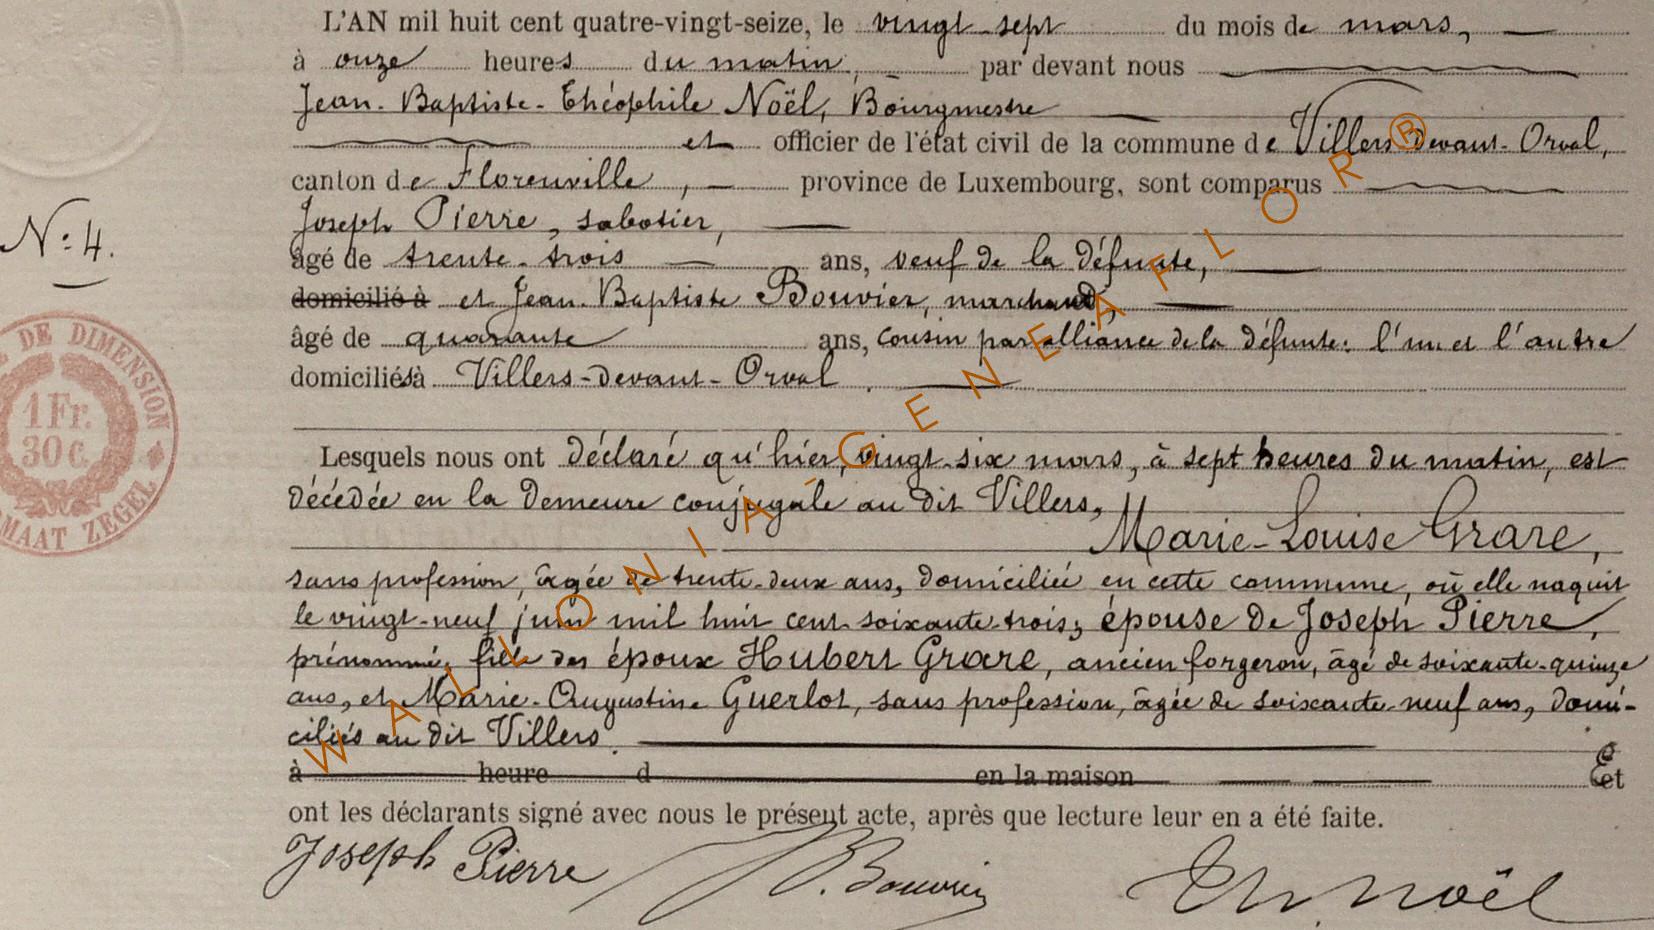 L'AN mil huit cent quatre-vingt-seize, le vingt-sept du mois de mars,
à onze heures du matin, par devant nous
Jean-Baptiste-Théophile Noël, Bourgmestre
et officier de l'état civil de la commune de Villers-devant-Orval,
canton de Florenville, province de Luxembourg, sont comparus
Joseph Pierre, sabotier,
N° 4.
âgé de trente-trois ans, veuf de la défunte,
domicilié à et Jean-Baptiste Bouvier, marchand,
âgé de quarante ans, cousin par alliance de la défunte: l'un et l'autre
domiciliés à Villers-devant-Orval.
Lesquels nous ont déclaré qu'hier, vingt-six mars, à sept heures du matin, est
décédée en la demeure conjugale au dit Villers,
Marie-Louise Grare,
sans profession, âgée de trente-deux ans, domiciliée en cette commune, où elle naquit
le vingt-neuf juin mil huit cent soixante-trois, épouse de Joseph Pierre,
prénommé, fille des époux Hubert Grare, ancien forgeron, âgé de soixante-quinze
ans, et Marie-Augustine Guerlot, sans profession, âgée de soixante-neuf ans, domi-
ciliés au dit Villers.
à heure d en la maison Et
ont les déclarants signé avec nous le présent acte, après que lecture leur en a été faite.
Joseph Pierre J. B. Bouvier Th. Noël
DE DIMENSION
1 Fr.
30 c.
MAAT ZEGEL
WALLONIA-GENEAFLOR®